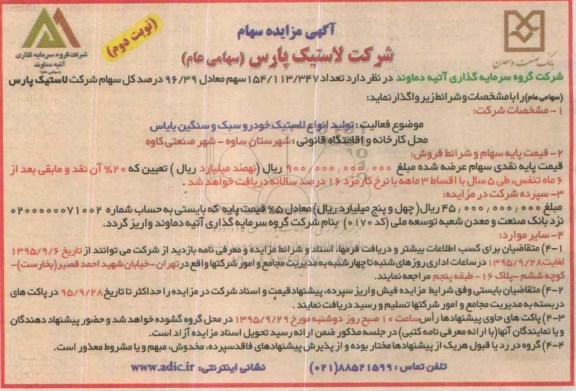 آگهی مزایده سهام
(نوبت دوم)
شرکت لاستیک پارس (سهامی عام)
بانک صنعت و معدن
شرکت گروه سرمایه گذاری
آتیه دماوند
شرکت گروه سرمایه گذاری آتیه دماوند در نظر دارد تعداد ۱۵۴/۱۱۳/۳۴۷ سهم معادل ۹۶/۳۹ درصد کل سهام شرکت لاستیک پارس
(سهامی عام) را با مشخصات و شرائط زیر واگذار نماید:
۱- مشخصات شرکت:
موضوع فعالیت: تولید انواع لاستیک خودرو سبک و سنگین بایاس
محل کارخانه و اقامتگاه قانونی: شهرستان ساوه - شهر صنعتی کاوه
۲- قیمت پایه سهام و شرائط فروش:
قیمت پایه نقدی سهام عرضه شده مبلغ ۹۰۰,۰۰۰,۰۰۰,۰۰۰ ریال (نهصد میلیارد ریال) تعیین که ۲۰% آن نقد و مابقی بعد از
۶ ماه تنفس، طی ۵ سال با اقساط ۳ ماهه با نرخ کارمزد ۱۶ درصد سالانه دریافت خواهد شد.
۳- سپرده شرکت در مزایده:
مبلغ ۴۵,۰۰۰,۰۰۰,۰۰۰ ریال (چهل و پنج میلیارد ریال) معادل ۵% قیمت پایه که بایستی به حساب شماره ۰۲۰۰۰۰۰۰۷۱۰۰۲
نزد بانک صنعت و معدن شعبه توسعه ملی (کد ۰۱۷۰) بنام شرکت گروه سرمایه گذاری آتیه دماوند واریز گردد.
۴- سایر موارد:
۴-۱) متقاضیان برای کسب اطلاعات بیشتر و دریافت فرمها، اسناد و شرائط مزایده و معرفی نامه بازدید از شرکت می توانند از تاریخ ۱۳۹۵/۹/۶
لغایت ۱۳۹۵/۹/۲۸ در ساعات اداری روزهای شنبه تا چهارشنبه به مدیریت مجامع و امور شرکتها واقع در تهران - خیابان شهید احمد قصیر (بخارست) -
کوچه ششم - پلاک ۱۶ - طبقه پنجم مراجعه نمایند.
۴-۲) متقاضیان بایستی وفق شرایط مزایده فیش واریز سپرده، پیشنهاد قیمت و اسناد شرکت در مزایده را حداکثر تا تاریخ ۹۵/۹/۲۸ در پاکت های
دربسته به مدیریت مجامع و امور شرکتها تسلیم و رسید دریافت نمایند.
۴-۳) پاکت های حاوی پیشنهادها رأس ساعت ۱۰ صبح روز دوشنبه مورخ ۱۳۹۵/۹/۲۹ در محل گروه گشوده خواهد شد و حضور پیشنهاد دهندگان
و یا نمایندگان آنها (با ارائه معرفی نامه کتبی) در جلسه مذکور ضمن ارائه رسید تحویل اسناد مزایده آزاد است.
۴-۴) گروه در رد یا قبول هر یک از پیشنهادها مختار بوده و از پذیرش پیشنهادهای فاقد سپرده، مخدوش، مبهم و یا مشروط معذور است.
تلفن تماس: ۸۸۵۲۱۵۹۹ (۰۲۱) نشانی اینترنتی: www.adic.ir